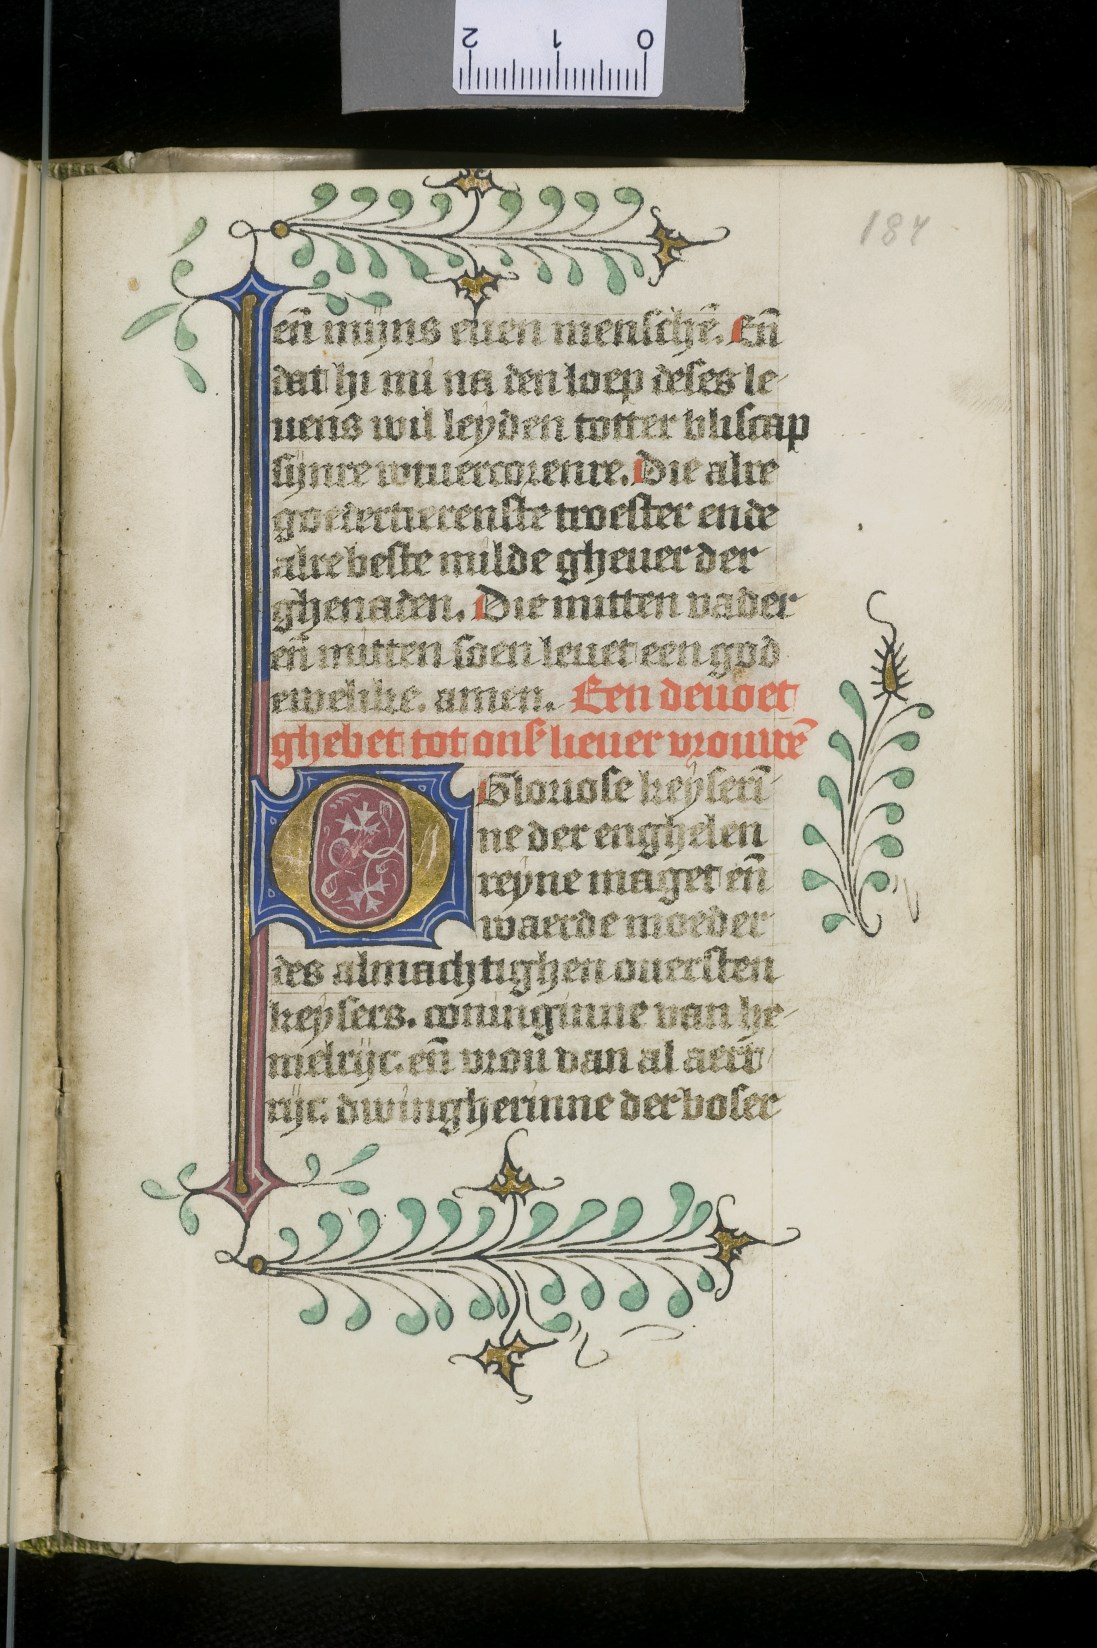 2 1 0
187
en̄ mijns euen menschē. En̄
dat hi mi na den loep deses le-
uens wil leyden totter bliscap
sijnre wtuercorenre. Die alre
goedertierenste troester ende
alre beste milde gheuer der
ghenaden. Die mitten vader
en̄ mitten soen leuet een god
ewelike. amen. Een deuoet
ghebet tot onſ lieuer vrouwē
O Gloriose keyserī-
ne der enghelen
reyne maget en̄
waerde moeder
des almachtighen ouersten
keysers. coninginne van he-
melrijc. en̄ vrou van al aert-
rijc. dwingherinne der boser